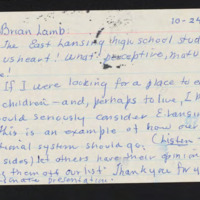 Brian Lamb: 10-24
The East Lansing High school stud
us heart! What perceptive, moth
If I were looking for a place to e
children – and, perhaps to live, I h
could seriously consider E. Lansing
This is an example of how our
system should go. (listen
sides) let others have their opinion
them off our list. Thank you for y
presentation.